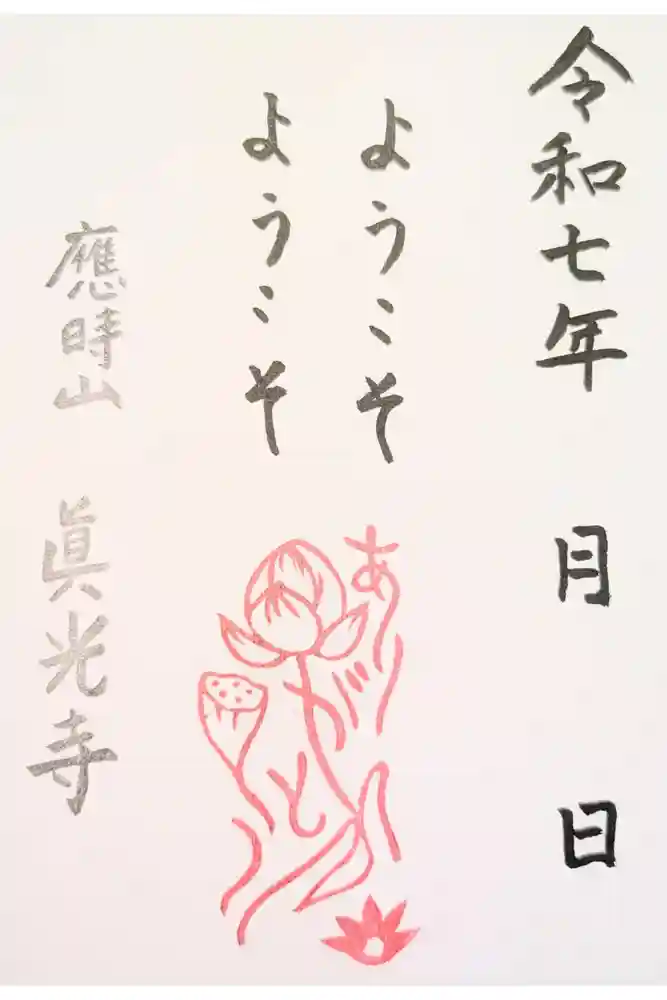 令和七年　月　日
ようこそ
ようこそ
ありがとう
應時山　眞光寺